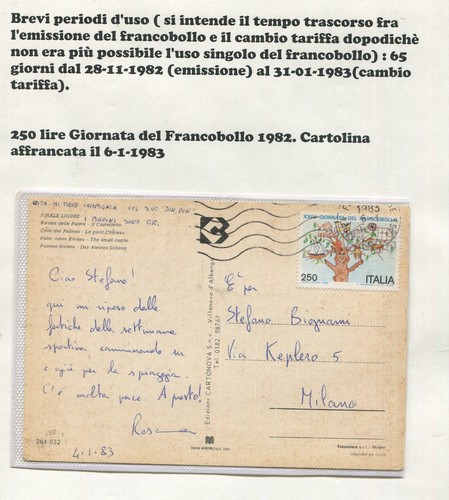 Brevi periodi d'uso ( si intende il tempo trascorso fra
l'emissione del francobollo e il cambio tariffa dopodichè
non era più possibile l'uso singolo del francobollo) : 65
giorni dal 28-11-1982 (emissione) al 31-01-1983(cambio
tariffa).
250 lire Giornata del Francobollo 1982. Cartolina
affrancata il 6-1-1983
FINALE LIGURE
Riviera delle Palme - Il Castelletto
Côte des Palmes - Le petit Château
Palm trees Riviera - The small castle
Palmen Riviera - Das kleines Schloss
Ciao Stefano!
qui mi riposo dalle
fatiche della settimana
sportiva, camminando su
e giù per la spiaggia.
C'è molta pace. A presto!
4.1.83
284-032
Edizioni CARTONOVA S.n.c. - Villanova d'Albenga
Tel. 0182 58767
1983
XXIV GIORNATA DEL FRANCOBOLLO
250
ITALIA
È per
Stefano Bignami
Via Keplero 5
Milano